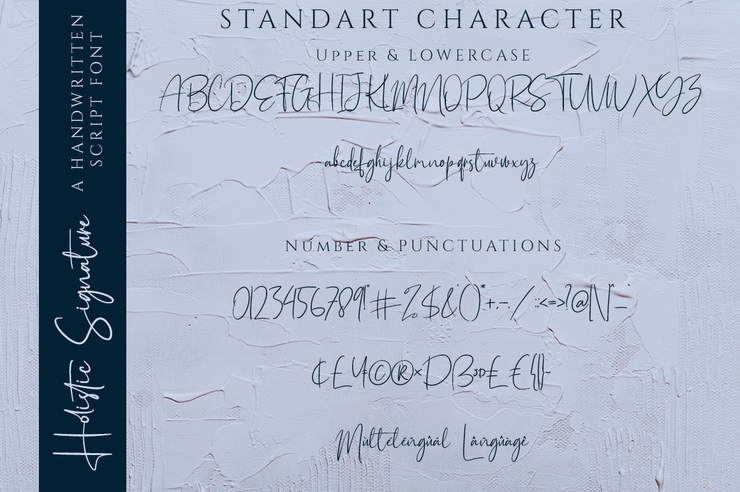 A HANDWRITTEN
SCRIPT FONT
Holistic Signature
STANDART CHARACTER
UPPER & LOWERCASE
ABCDEFGHIJKLMNOPQRSTUVWXYZ
abcdefghijklmnopqrstuvwxyz
NUMBER & PUNCTUATIONS
0123456789!"#%$&()*+,-./:;<=>?@[\]^_`
Mùltèlèngùàl Làngùàgè